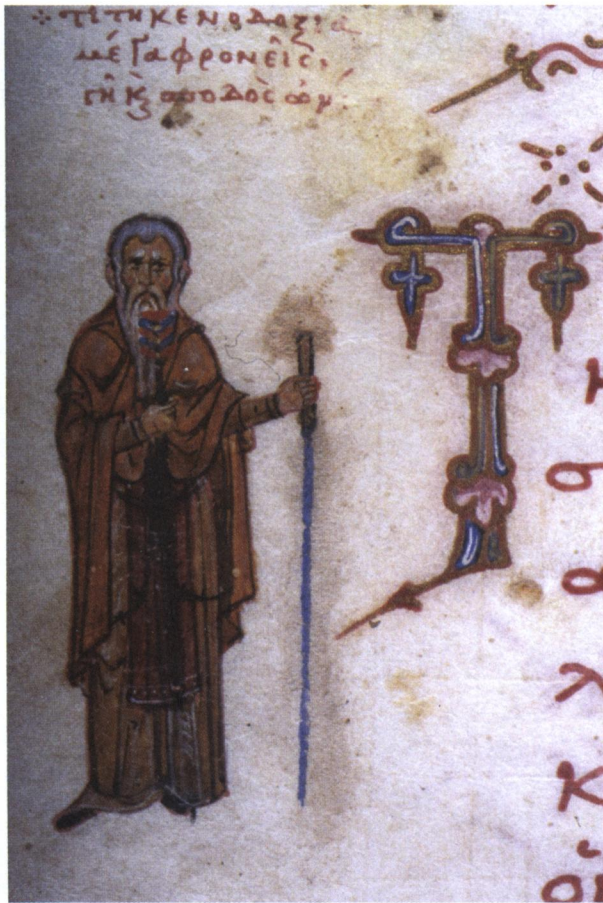 τί τῆ κενοδοξία
μέγα φρονεῖς,
γῆ κ σποδὸς ὤν:
Τ
λ
κ